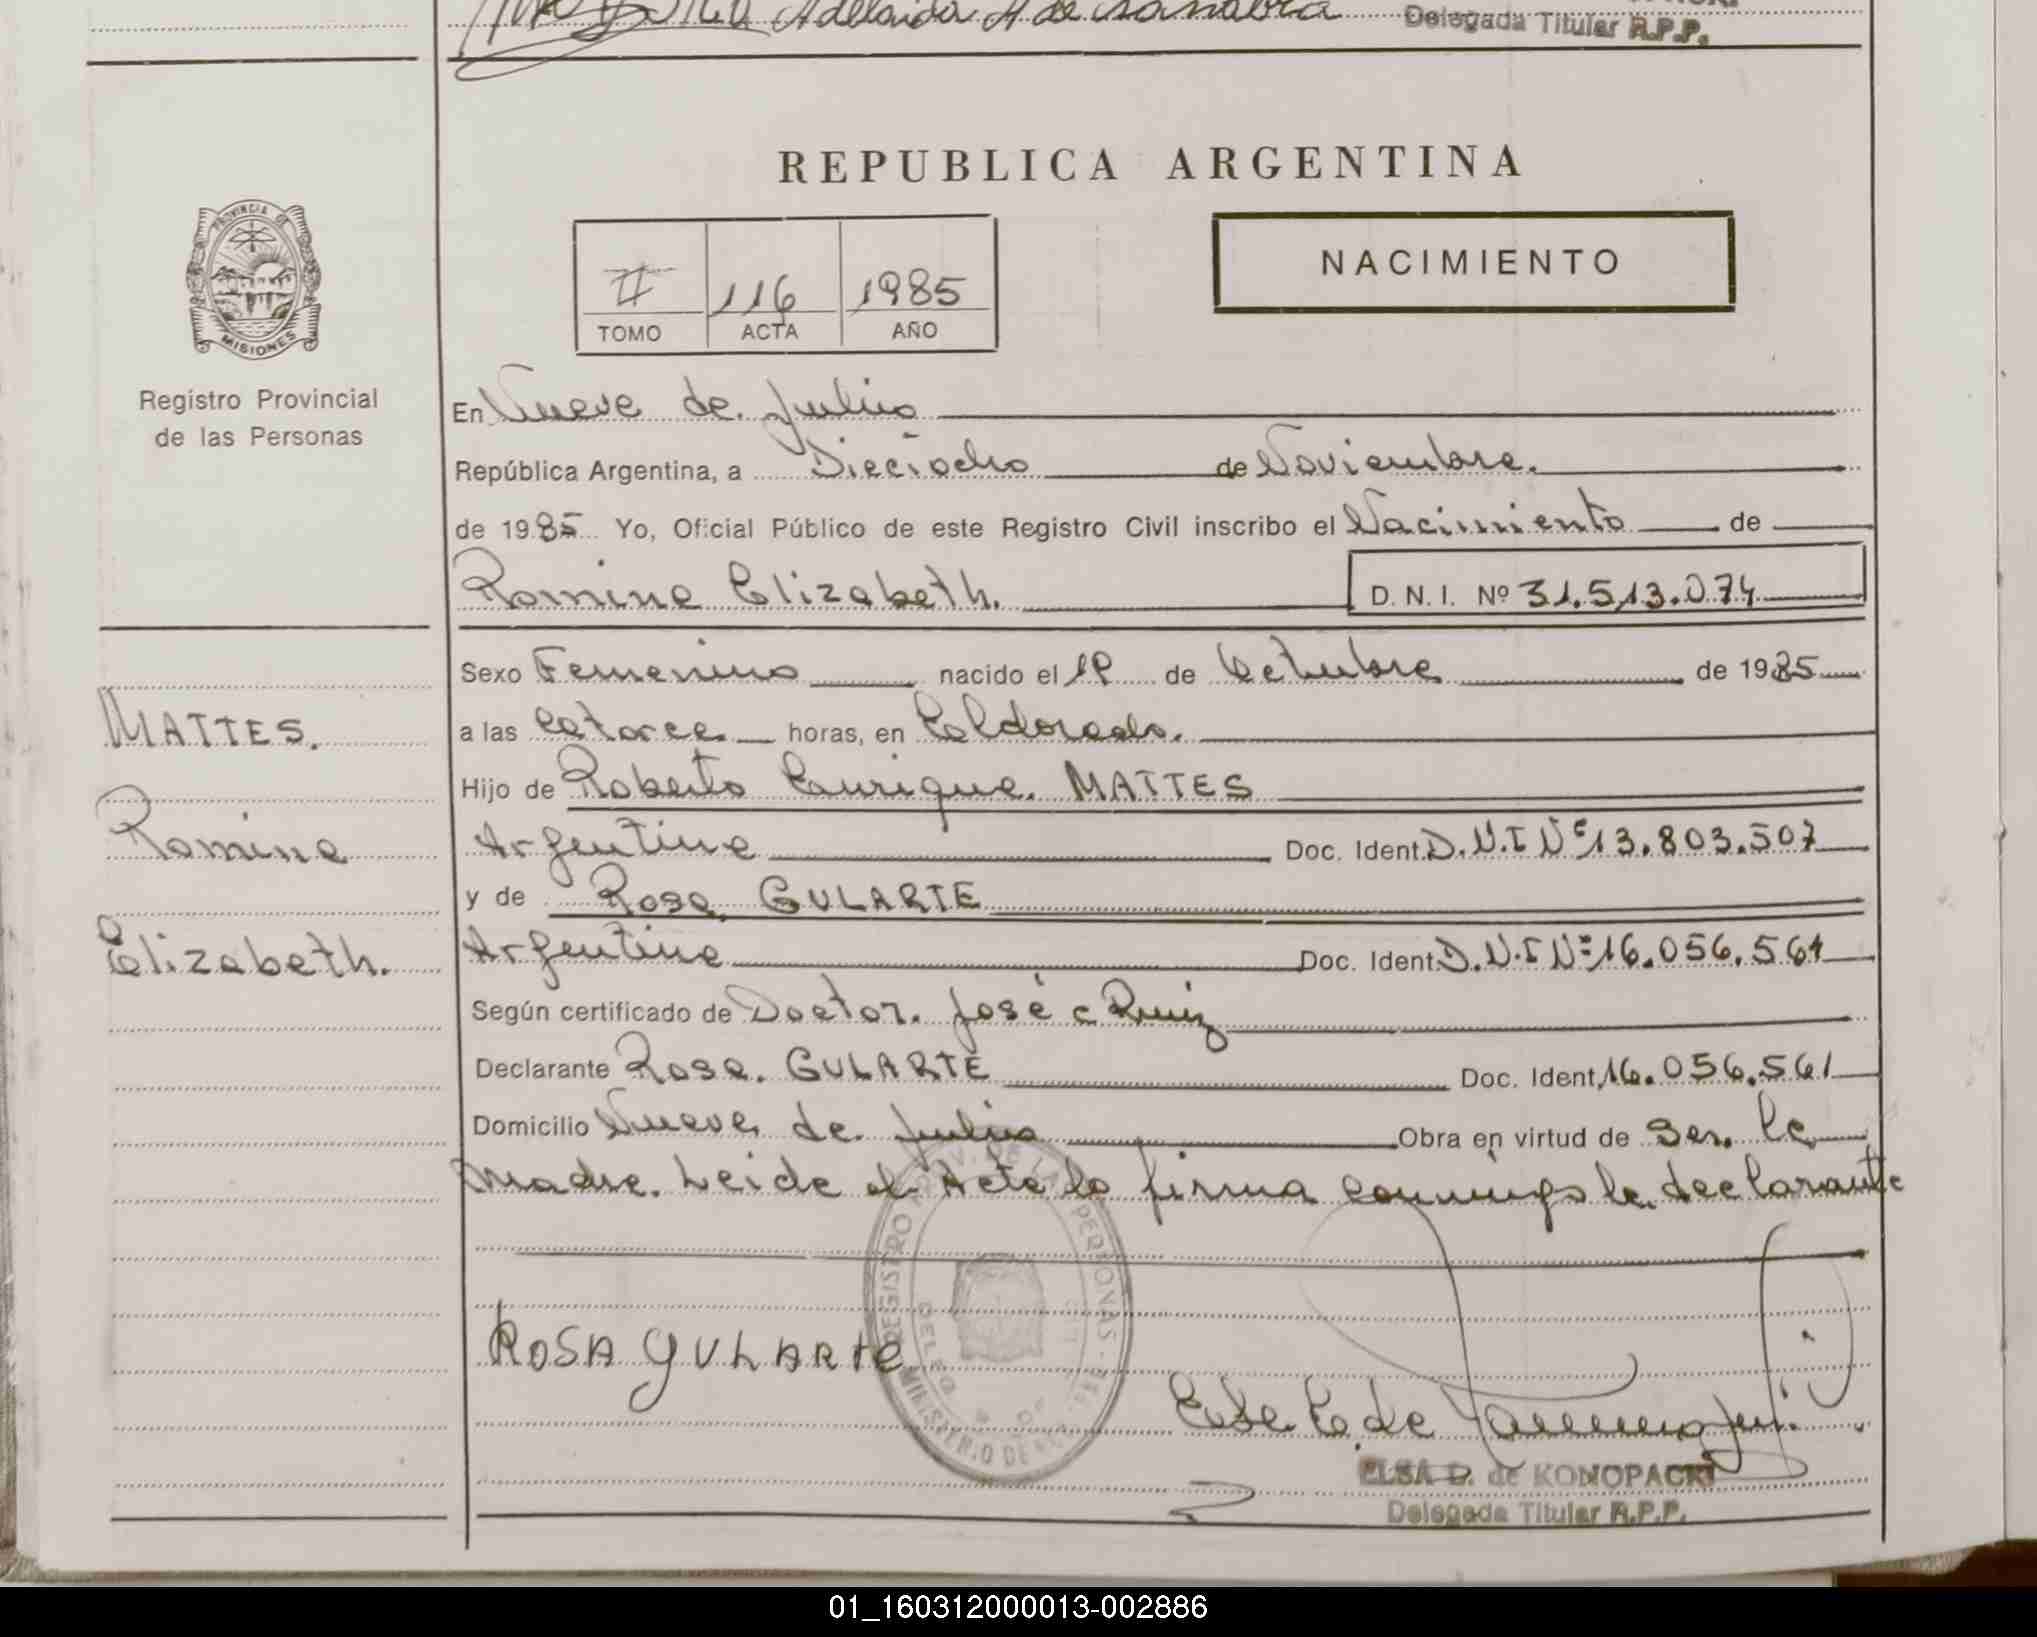 Adelaida A de Sanabria
Delegada Titular R.P.P.
REPUBLICA ARGENTINA
PROVINCIA DE
MISIONES
Registro Provincial
de las Personas
II 116 1985
TOMO ACTA AÑO
NACIMIENTO
En Nueve de Julio
República Argentina, a Dieciocho de Noviembre.
de 1985 Yo, Oficial Público de este Registro Civil inscribo el Nacimiento de
Romina Elizabeth. D. N. I. Nº 31.513.074
Sexo Femenino nacido el 19 de Octubre de 1985
a las Catorce horas, en Eldorado.
Hijo de Roberto Enrique. MATTES
Argentina Doc. Ident. D.N.I Nº 13.803.507
y de Rosa. GULARTE
Argentina Doc. Ident. D.N.I Nº 16.056.561
Según certificado de Doctor. José C Ruiz
Declarante Rosa. GULARTE Doc. Ident. 16.056.561
Domicilio Nueve de Julio Obra en virtud de ser. la
madre. Leida el Acta la firma conmigo la declarante
MATTES.
Romina
Elizabeth.
ROSA GULARTE
REGISTRO PROV. DE LAS PERSONAS
MINISTERIO DE
Elsa C. de
ELSA D. de KONOPACKI
Delegada Titular R.P.P.
01_160312000013-002886